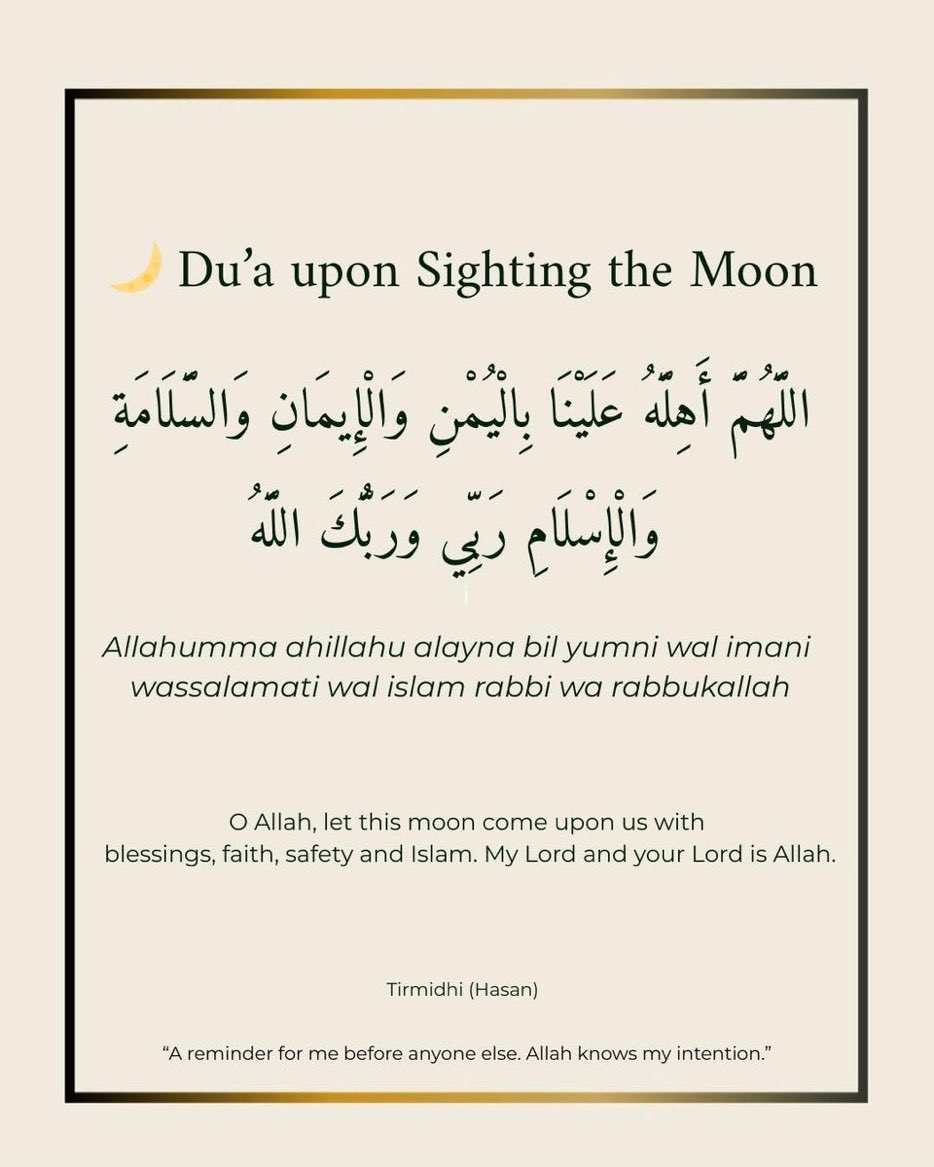 🌙 Du’a upon Sighting the Moon
اللَّهُمَّ أَهِلَّهُ عَلَيْنَا بِالْيُمْنِ وَالْإِيمَانِ وَالسَّلَامَةِ
وَالْإِسْلَامِ رَبِّي وَرَبُّكَ اللَّهُ
i
Allahumma ahillahu alayna bil yumni wal imani
wassalamati wal islam rabbi wa rabbukallah
O Allah, let this moon come upon us with
blessings, faith, safety and Islam. My Lord and your Lord is Allah.
Tirmidhi (Hasan)
“A reminder for me before anyone else. Allah knows my intention.”